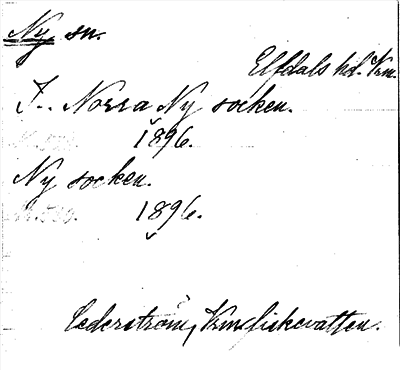 Ny sn.
Elfdals hd. Krm.
I. Norra Ny socken.
1896.
Ny socken.
1896.
Cederström, Vrml fiskevatten.